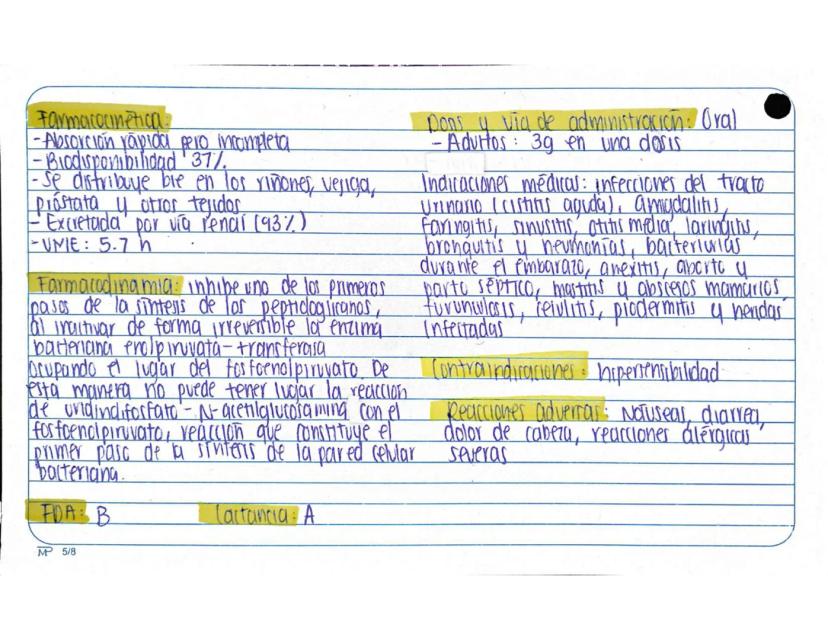 Farmacocinética:
-Absorción rápida pero incompleta
-Biodisponibilidad 37%
-Se distribuye bie en los riñones, vejiga,
próstata y otros tejidos
-Excretada por vía renal (93%)
-VME: 5.7 h
Farmacodinamia: inhibe uno de los primeros
pasos de la síntesis de los peptidoglicanos,
al inactivar de forma irreversible la enzima
bacteriana enolpiruvato-transferasa
ocupando el lugar del fosfoenolpiruvato. De
esta manera no puede tener lugar la reacción
de uridindifosfato-N-acetilglucosamina con el
fosfoenolpiruvato, reacción que constituye el
primer paso de la síntesis de la pared celular
bacteriana.
FDA: B
Lactancia: A
MP 5/8
Dosis y vía de administración: Oral
- Adultos: 3g en una dosis
Indicaciones médicas: infecciones del tracto
urinario (cistitis aguda), amigdalitis,
faringitis, sinusitis, otitis media, laringitis,
bronquitis y neumonías, bacteriurias
durante el embarazo, anexitis, aborto y
parto séptico, mastitis y abscesos mamarios,
furunculosis, celulitis, piodermitis y heridas
infectadas
Contraindicaciones: hipersensibilidad
Reacciones adversas: Náuseas, diarrea,
dolor de cabeza, reacciones alérgicas
severas